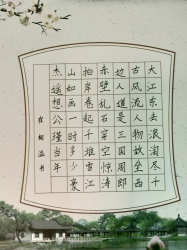 大江东去浪淘尽千
古风流人物故垒西
边人道是三国周郎
赤壁乱石穿空惊涛
拍岸卷起千堆雪江
山如画一时多少豪
杰遥想公瑾当年